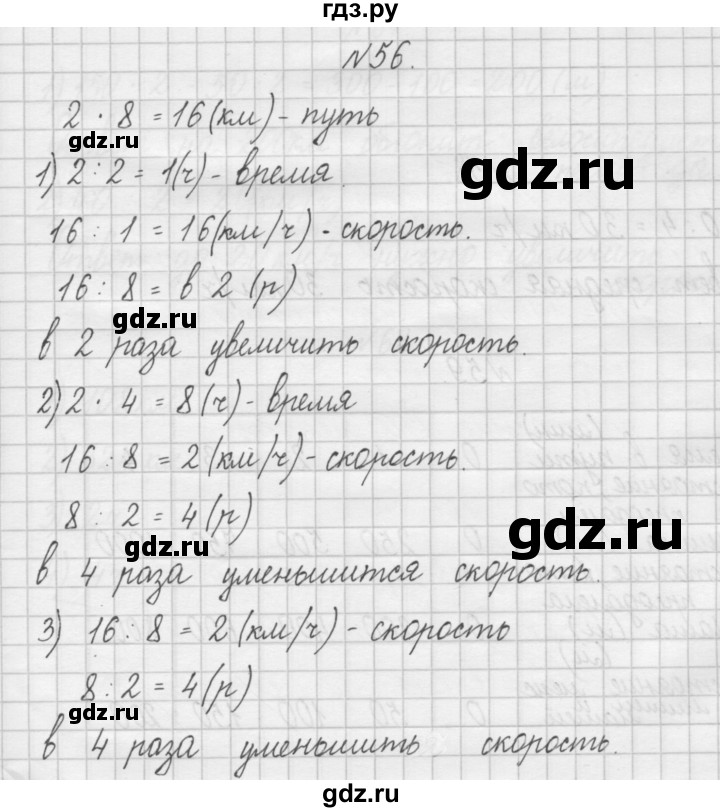 гдз.ру
N56.
2 · 8 = 16 (км) - путь
gdz.ru
1) 2 : 2 = 1(ч) - время.
gdz.ru
16 : 1 = 16(км/ч) - скорость.
16 : 8 = в 2 (р)
gdz.ru
в 2 раза увеличить скорость.
2) 2 · 4 = 8(ч) - время
gdz.ru
16 : 8 = 2(км/ч) - скорость.
8 : 2 = 4 (р)
gdz.ru
gdz.ru
в 4 раза уменьшится скорость.
3) 16 : 8 = 2 (км/ч) - скорость
gdz.ru
8 : 2 = 4 (р)
gdz.ru
в 4 раза уменьшить скорость.
gdz.ru